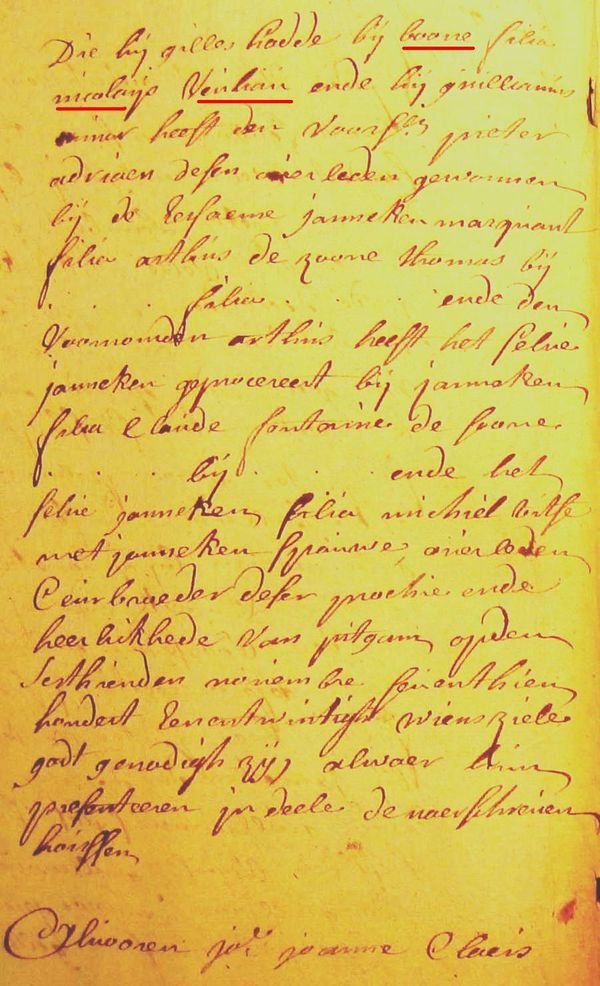 Die hij gilles hadde bij boone filia
nicolaijs Verhan ende hij guillianus
minor heeft den Voors. pieter
adriaen desen overleden gewonnen
bij de Eersaeme janneken marquant
filia arthus de zoone thomas bij
. . . filia . . . ende den
Voornomden arthus heeft het selve
janneken geprocereert bij janneken
filia Claude fontaine de soone
. . . bij . . . ende het
selve janneken filia michiel vitse
met janneken spauwe overleden
Ceurbroeder deser prochie ende
heerlikhede Van pitgam opden
sesthienden noviembre seventhien
hondert Eenentwintigh wiens ziele
godt genadigh zij alwaer hun
presenteeren in deele de naerschreven
hoirssen
joe joanne Claeis